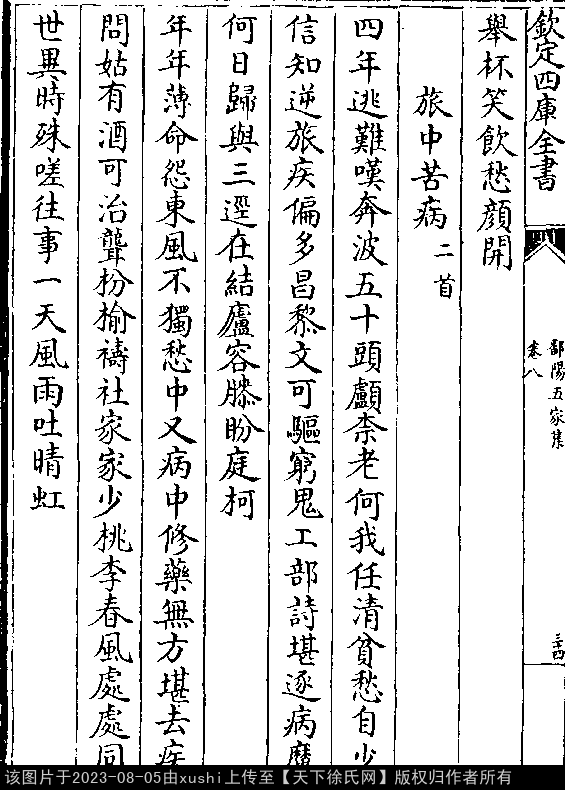 欽定四庫全書
鄱陽五家集
卷八
三四
舉杯笑飲愁顔開
旅中苦病二首
四年逃難嘆奔波五十頭顱柰老何我任清貧愁自少
信知逆旅疾偏多昌黎文可驅窮鬼工部詩堪逐病魔
何日歸與三逕在結廬容膝盼庭柯
年年薄命怨東風不獨愁中又病中修藥無方堪去疾
問姑有酒可治聾枌榆禱社家家少桃李春風處處同
世異時殊嗟往事一天風雨吐晴虹
该图片于2023-08-05由xushi上传至【天下徐氏网】版权归作者所有